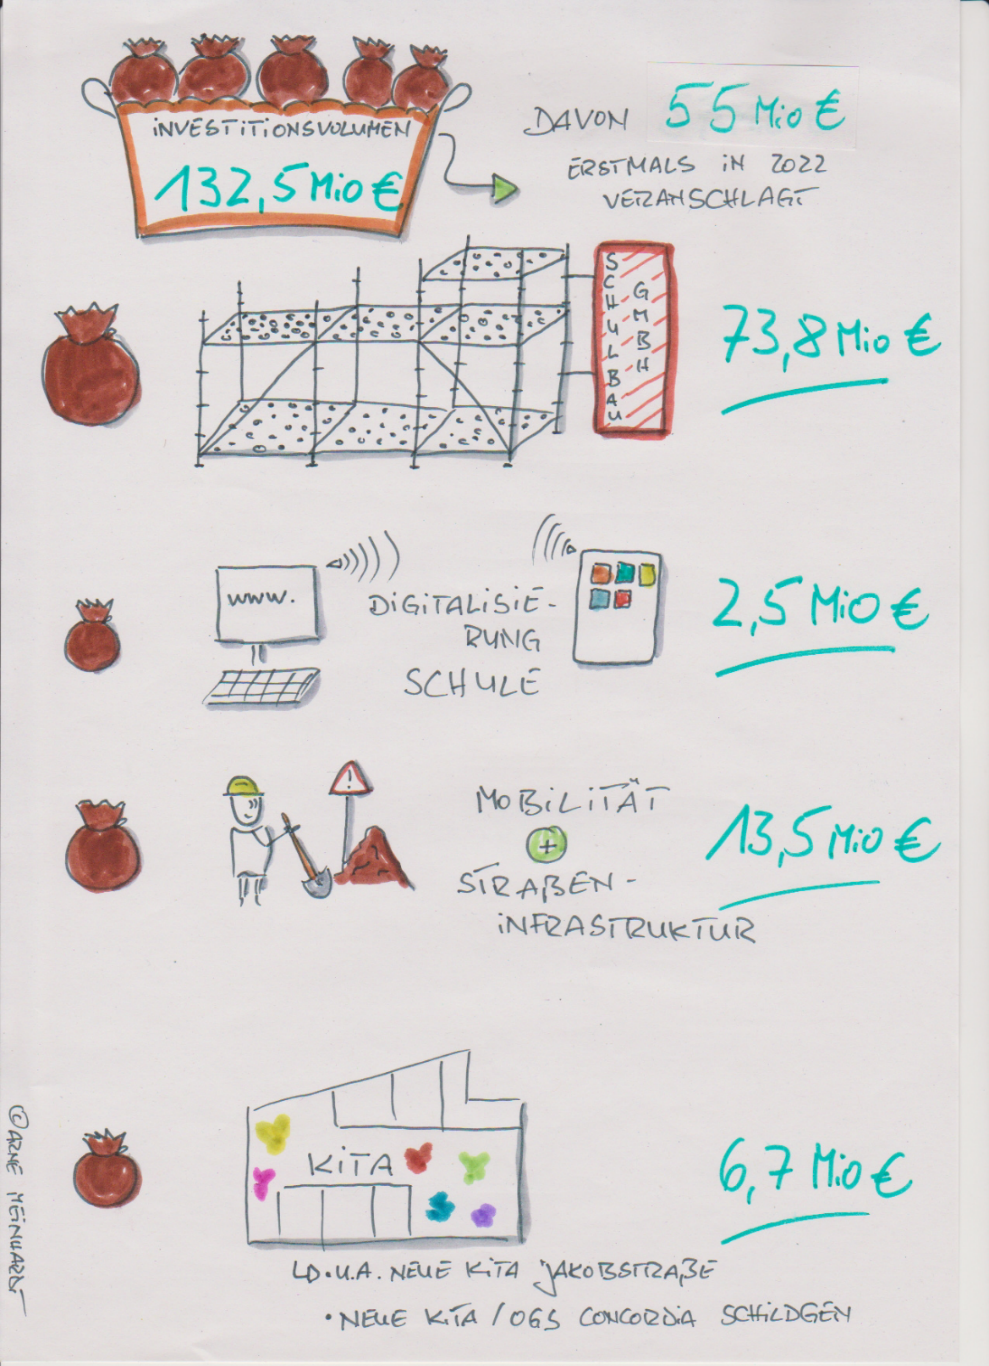 INVESTITIONSVOLUMEN
132,5 Mio €
DAVON 55 Mio €
ERSTMALS IN 2022
VERANSCHLAGT
SCHULBAU
GMBH
73,8 Mio €
www.
DIGITALISIE-
RUNG
SCHULE
2,5 Mio €
!
MOBILITÄT
+
STRAßEN-
INFRASTRUKTUR
13,5 Mio €
KITA
6,7 Mio €
U.A. NEUE KITA JAKOBSTRAßE
• NEUE KITA / OGS CONCORDIA SCHILDGEN
© ARNE MEINHARDT